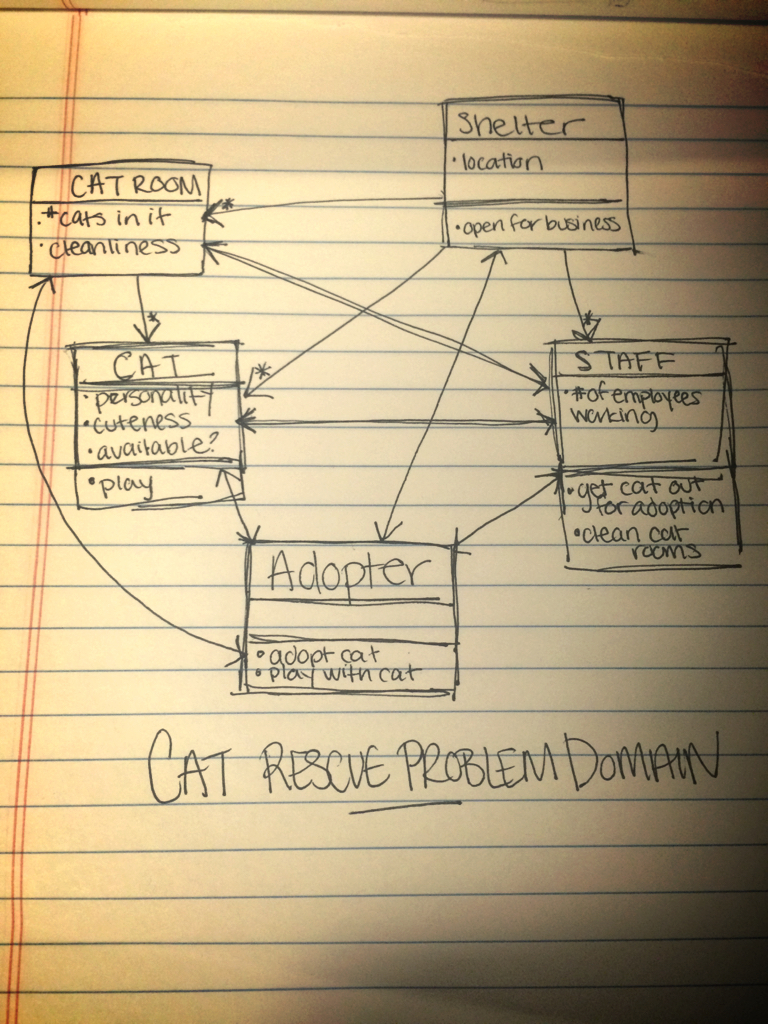 Shelter
• location
• open for business
CAT ROOM
• # cats in it
• cleanliness
*
*
*
*
CAT
• personality
• cuteness
• available?
• play
STAFF
• # of employees
working
• get cat out
for adoption
• clean cat
rooms
Adopter
• adopt cat
• play with cat
CAT RESCUE PROBLEM DOMAIN